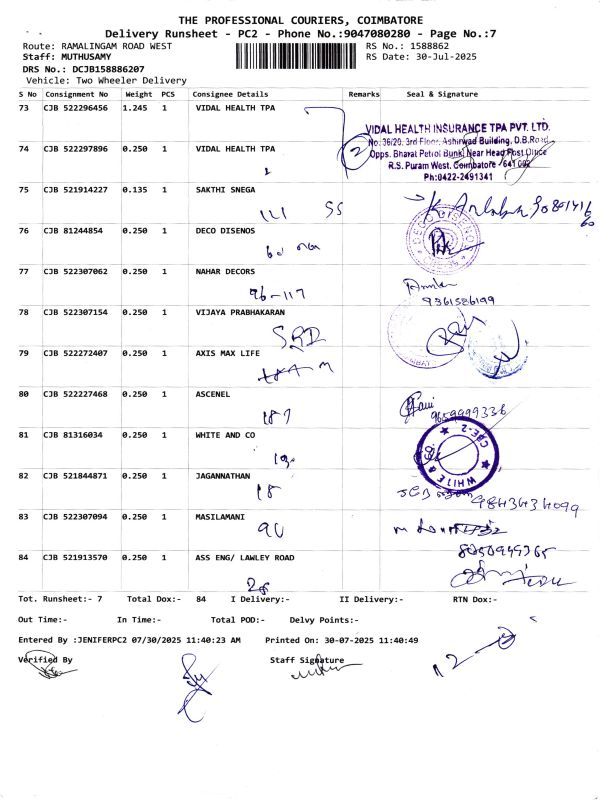 THE PROFESSIONAL COURIERS, COIMBATORE
Delivery Runsheet - PC2 - Phone No.:9047080280 - Page No.:7
Route: RAMALINGAM ROAD WEST RS No.: 1588862
Staff: MUTHUSAMY RS Date: 30-Jul-2025
DRS No.: DCJB158886207
Vehicle: Two Wheeler Delivery
S No Consignment No Weight PCS Consignee Details Remarks Seal & Signature
73 CJB 522296456 1.245 1 VIDAL HEALTH TPA
VIDAL HEALTH INSURANCE TPA PVT. LTD.
No. 36/20, 3rd Floor, Ashirwad Building, D.B.Road,
74 CJB 522297896 0.250 1 VIDAL HEALTH TPA 2
Opps. Bharat Petrol Bunk, Near Head Post Office
R.S. Puram West, Coimbatore - 641 002
Ph:0422-2491341
75 CJB 521914227 0.135 1 SAKTHI SNEGA
111 SS
76 CJB 81244854 0.250 1 DECO DISENOS
DECO DISENOS
77 CJB 522307062 0.250 1 NAHAR DECORS
96-117
9361586199
78 CJB 522307154 0.250 1 VIJAYA PRABHAKARAN
79 CJB 522272407 0.250 1 AXIS MAX LIFE
80 CJB 522227468 0.250 1 ASCENEL
187 9659999336
81 CJB 81316034 0.250 1 WHITE AND CO
WHITE & CO CBE-2
82 CJB 521844871 0.250 1 JAGANNATHAN
18 9843434099
83 CJB 522307094 0.250 1 MASILAMANI
90
8050949365
84 CJB 521913570 0.250 1 ASS ENG/ LAWLEY ROAD
26
Tot. Runsheet:- 7 Total Dox:- 84 I Delivery:- II Delivery:- RTN Dox:-
Out Time:- In Time:- Total POD:- Delvy Points:-
Entered By :JENIFERPC2 07/30/2025 11:40:23 AM Printed On: 30-07-2025 11:40:49
Verified By Staff Signature